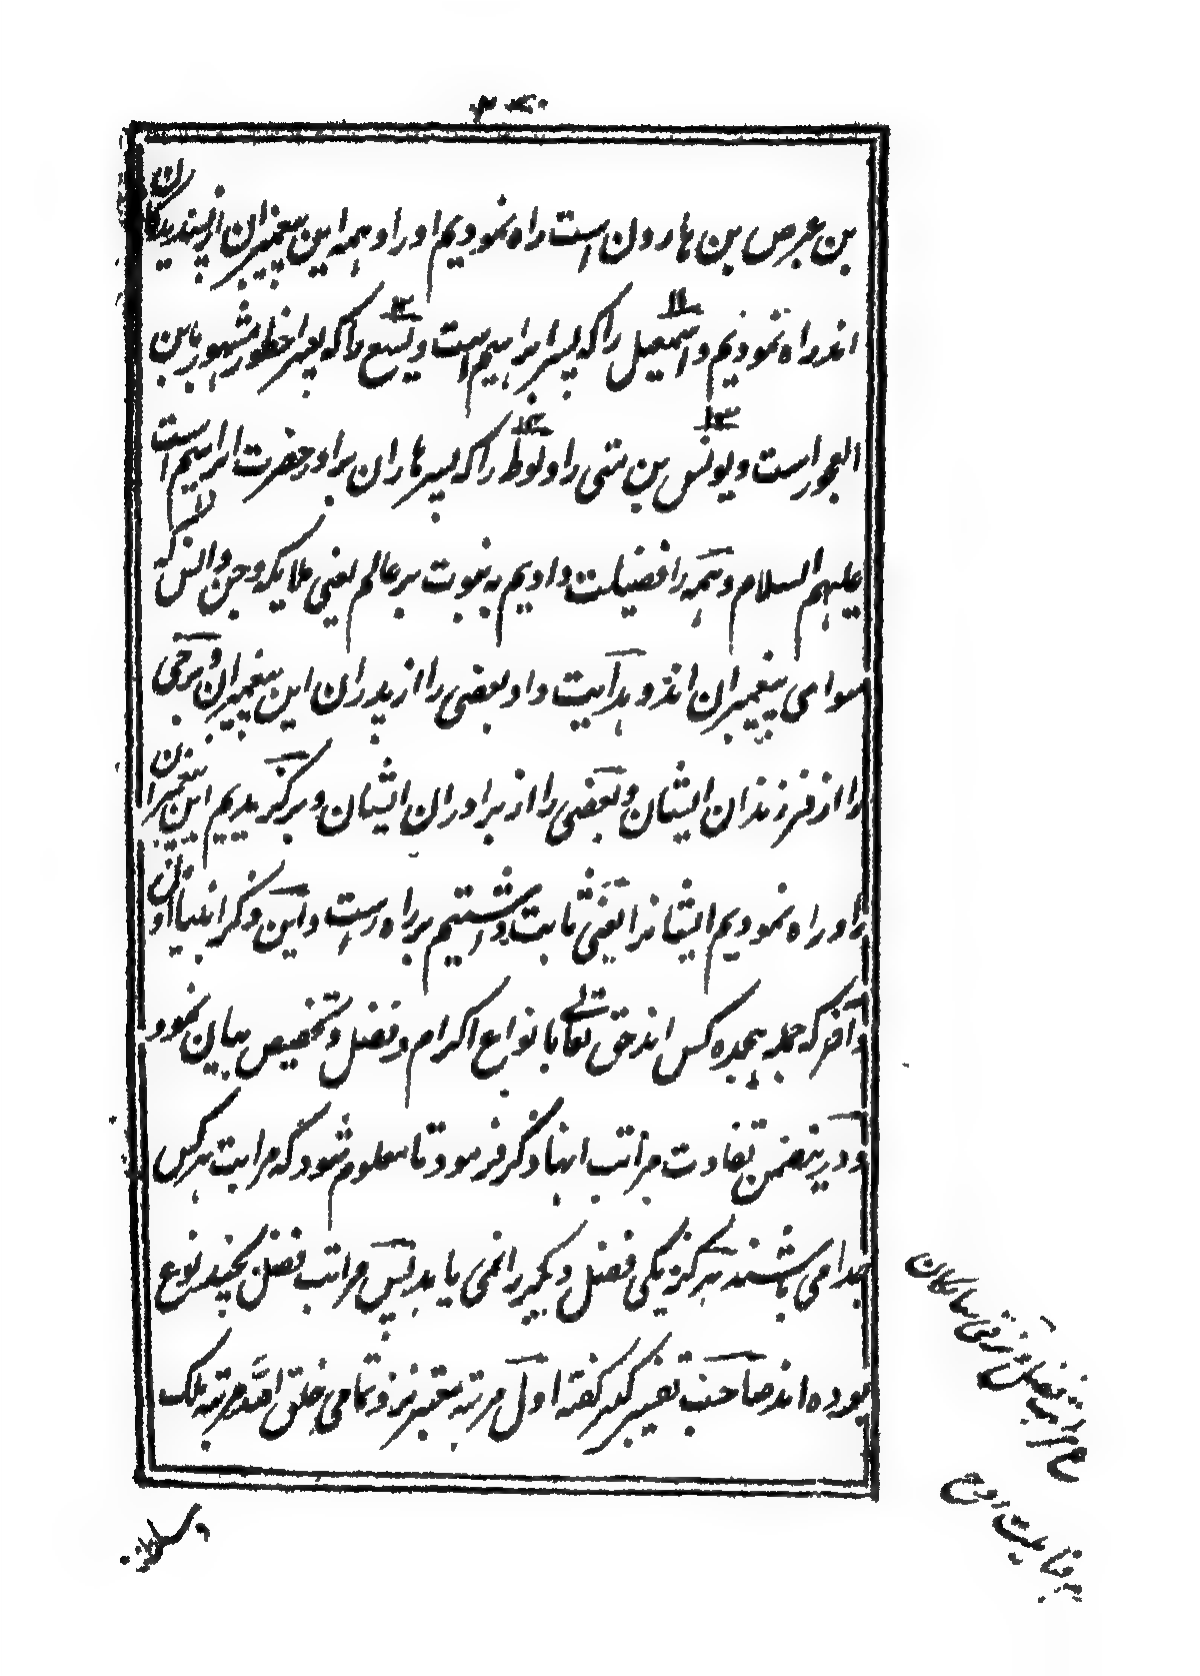 بن عرص بن هارون است راه نمودیم او را و همه این پیغمبران از پسندیدگان
اند راه نمودیم و اسمعیل را که پسر ابراهیم است و یسع را که پسر اخطور مشهور بابن
العجوز است و یونس بن متی را و لوط را که پسر هاران برادر حضرت ابراهیم است
علیهم السلام و همه را فضیلت دادیم به نبوت بر عالم یعنی ملایکه و جن و انس که
سوا می پیغمبران اند و هدایت داد بعضی را از پدران این پیغمبران و برخی
را از فرزندان ایشان و بعضی را از برادران ایشان و برگزیدیم این پیغمبران
را و راه نمودیم ایشانرا یعنی ثابت داشتیم بر راه راست و این ذکر انبیا اول
و آخر که جمله هیجده کس اند حق تعالی با نواع اکرام و فضل و تخصیص بیان نمود
و درینضمن تفاوت مراتب انها ذکر فرمود تا معلوم شود که مراتب هر کس
جدا می باشند هر کز یکی فضل دیگر را نمی یابد پس مراتب فضل بچند نوع
بوده اند صاحب تفسیر کبیر گفته اول مرتبه معتبر نزد تمامی خلق الله مرتبه ملک
م مراتب فضل و ترقی سالکان
وسلا